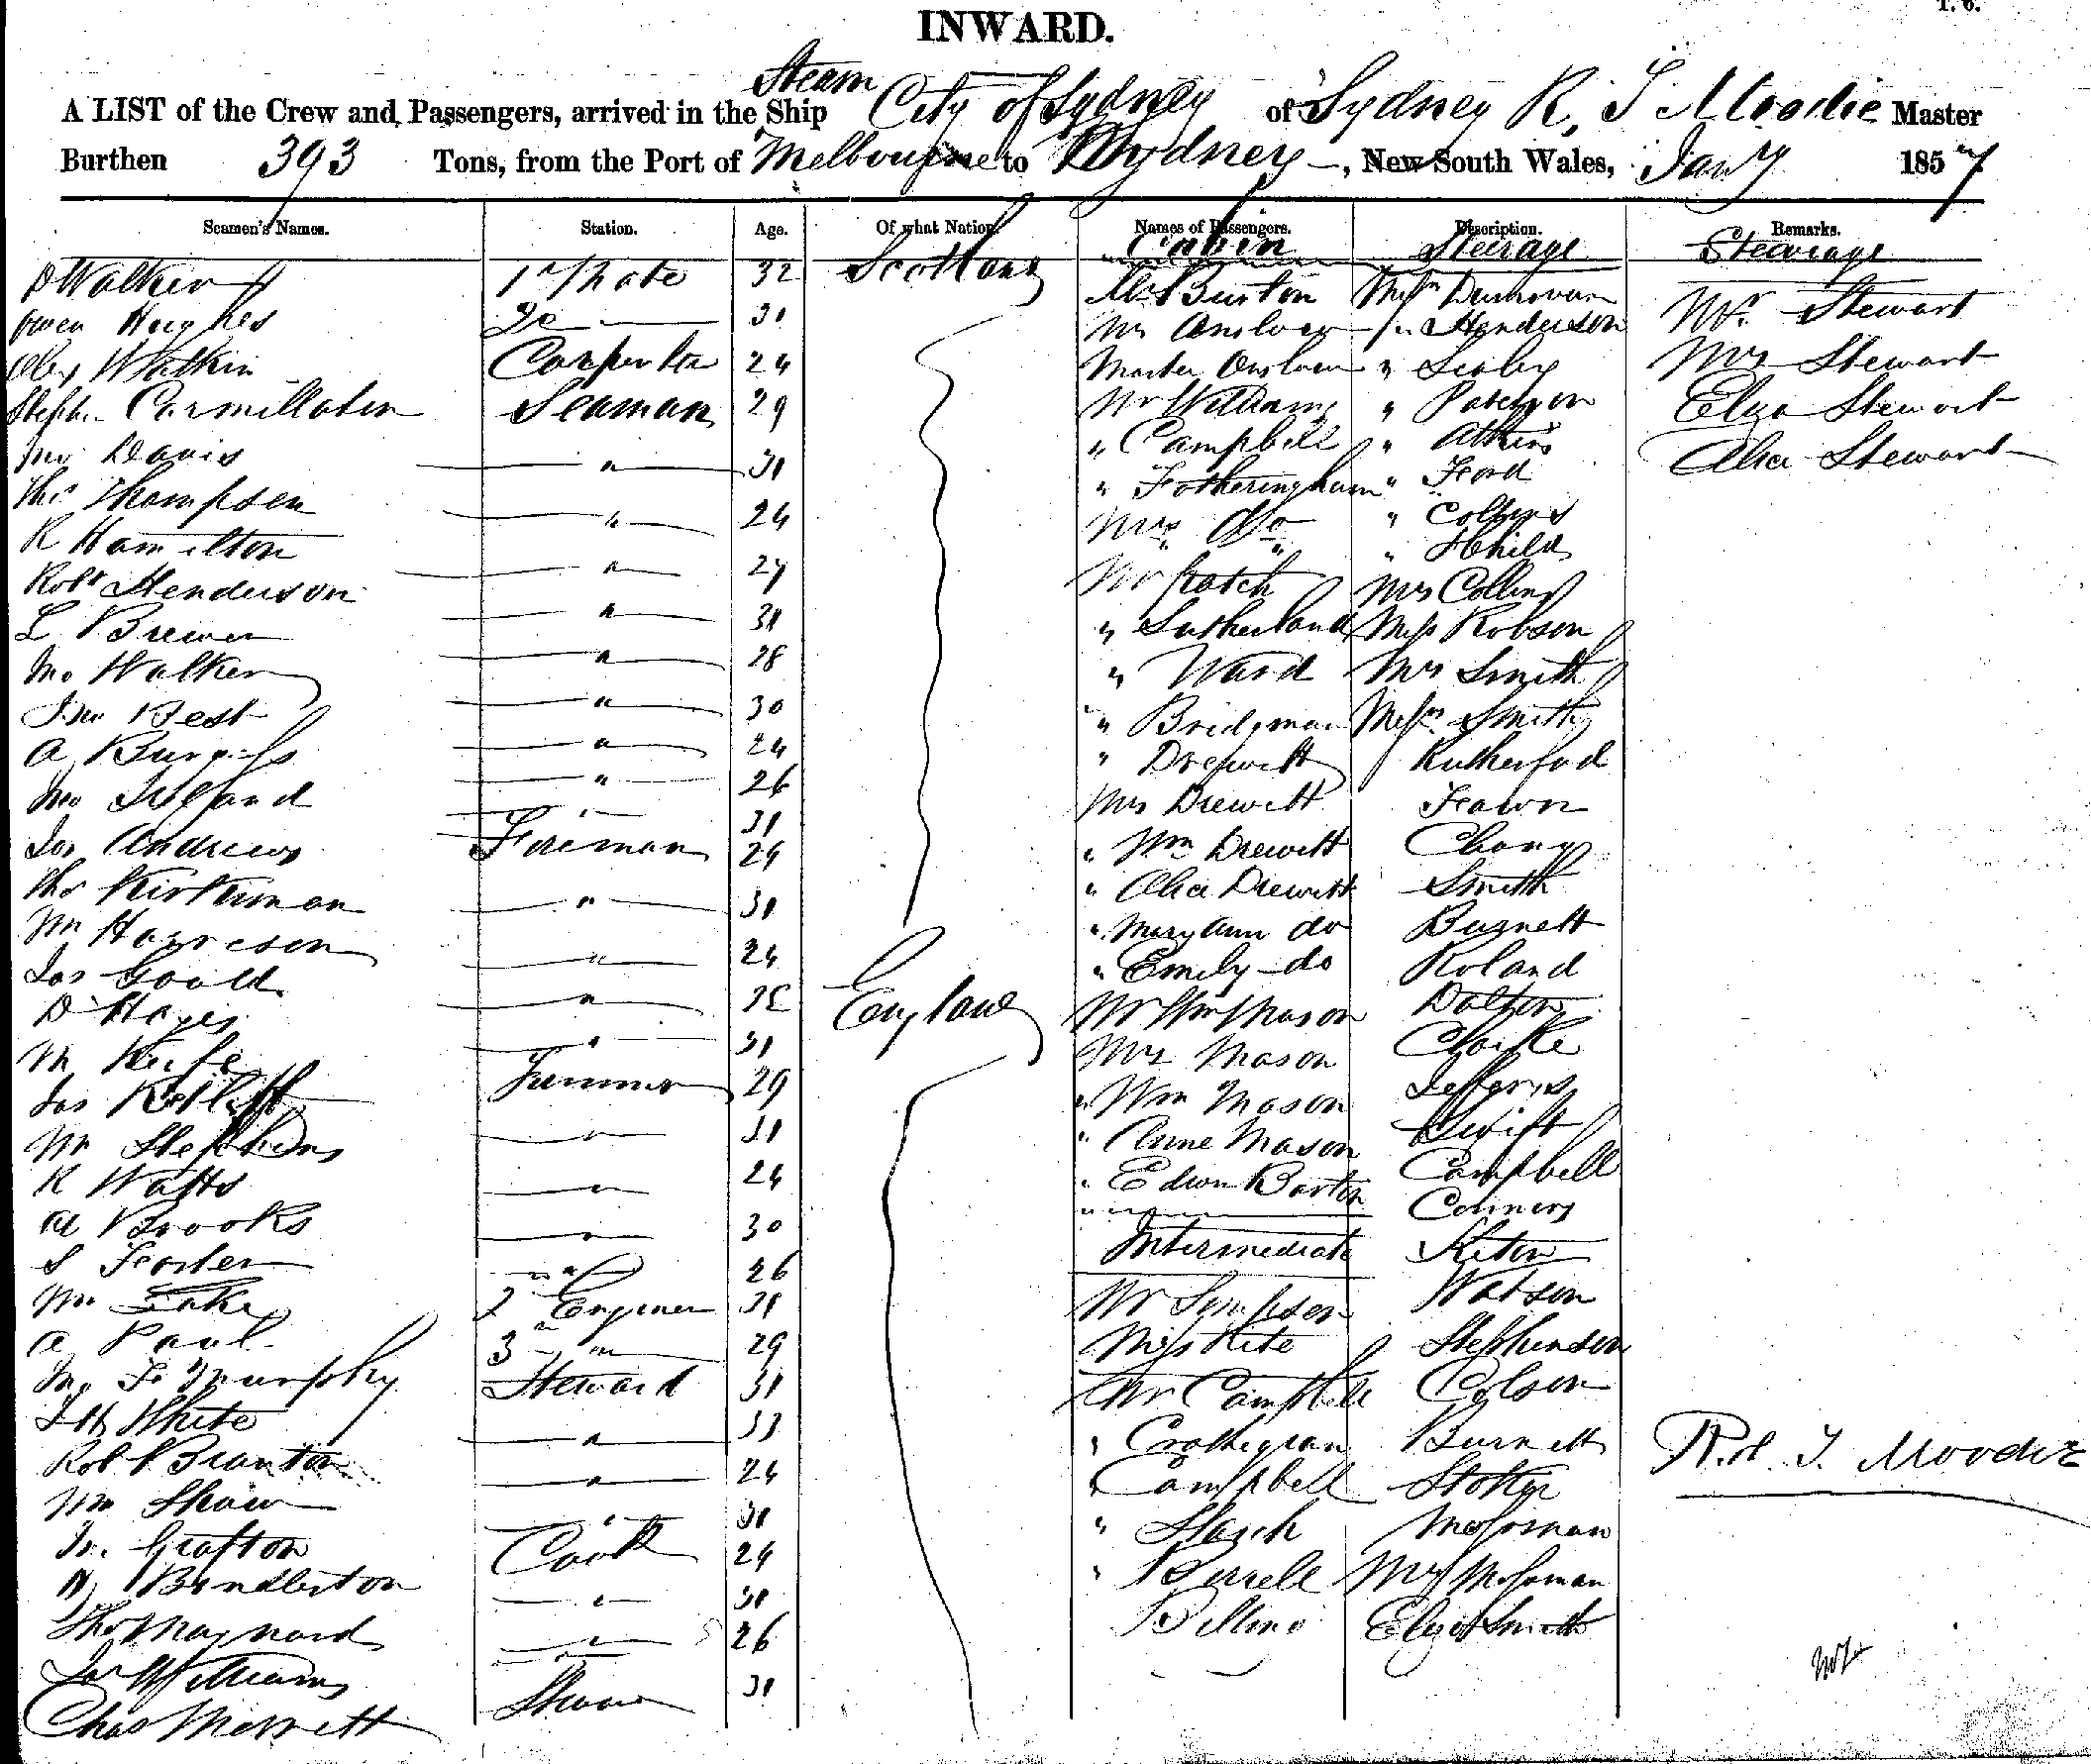 INWARD.
Steam
A LIST of the Crew and Passengers, arrived in the Ship City of Sydney of Sydney R. T Moodie Master
Burthen 393 Tons, from the Port of Melbourne to Sydney, New South Wales, Jany 1857
Seamen's Names. Station. Age. Of what Nation. Names of Passengers. Description. Remarks.
Cabin Steerage Steerage
D Walker 1st Mate 32 Scotland Mr Burton Messrs Donovan Mr. Stewart
Owen Hughes 2d 31 Henderson Mrs Stewart
Alex Watkin Carpenter 24 Master " Eliza Stewart
Stephen Seaman 29 Mr Williams " Paterson Alice Stewart
Jno Davis " 31 " Campbell " Atkins
Thos Thompson " 24 " Fotheringham " Ford
R Hamilton " 27 Mrs Do " Collins
Robt Henderson " 31 Mr Patch " Child
L Brewer " 28 " Sutherland Mrs Collins
Jno Walker " 30 " Ward Miss Robson
Jno Best " 24 " Bridgman Mrs Smith
A Burgess " 26 " Drewett Messrs Smith
Jno Ireland " 31 Mrs Drewett Rutherford
Jas Andrews Fireman 24 " Wm Drewett Fawn
Thos Kirkman " 31 " Alice Drewett Chong
Wm Harreson " 24 " Mary Ann do Smith
Jas Goold " " Emily do Burnett
D Hayes " 31 England Mr Wm Mason Roland
M Keefe Trimmer 29 Mrs Mason Dalton
Jas Ratliff " 31 " Wm Mason Clarke
Wm Stephens " 24 " Anne Mason Jefferis
R Watts " 30 " Edwin Barton Swift
A Brooks " 26 Intermediate Campbell
S Foster 2 Engineer 31 Mr Simpson Connery
Wm Lake 3 " 29 Miss Kite Keton
A Paul Steward 31 Mr Campbell Watson
Jno F Murphy " 33 Stephenson
J H White " 24 Campbell Colson
Robt Branton " 31 " Burnett
Wm Shaw Cook 24 " Burrell Stoker
Jno Grafton " 31 Mossman
" 26 Mrs Mossman
Thos Maynard 31 Eliza Smith
Jas Williams
Chas Merrett
Rd. T. Moodie